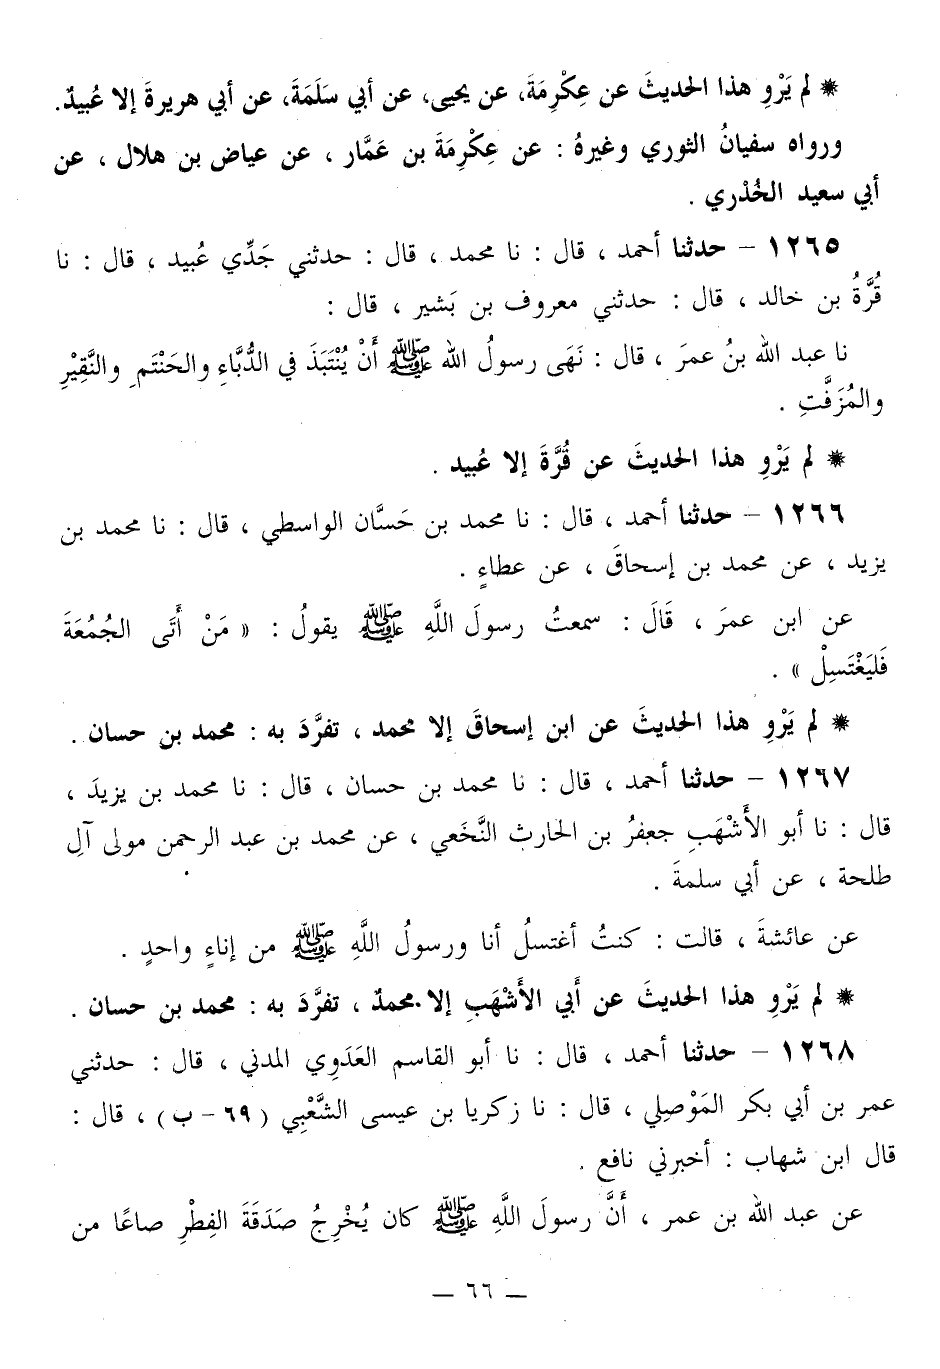 * لم يَرْوِ هذا الحديثَ عن عِكْرِمَةَ، عن يحيى، عن أبي سَلَمَةَ، عن أبي هريرةَ إلا عُبيدٌ.
ورواه سفيانُ الثوري وغيرهُ : عن عِكْرِمَةَ بن عَمَّار ، عن عياض بن هلال ، عن
أبي سعيد الخُدْري .
١٢٦٥ – حدثنا أحمد ، قال : نا محمد ، قال : حدثني جَدِّي عُبيد ، قال : نا
قُرَّةُ بن خالد ، قال : حدثني معروف بن بَشير ، قال :
نا عبد الله بنُ عمرَ ، قال : نَهَى رسولُ الله ﷺ أَنْ يُنْتَبَذَ في الدُّبَّاءِ والحَنْتَمِ والنَّقِيْرِ
والمُزَفَّتِ .
* لم يَرْوِ هذا الحديثَ عن قُرَّةَ إلا عُبيد .
١٢٦٦ – حدثنا أحمد ، قال : نا محمد بن حَسَّان الواسطي ، قال : نا محمد بن
يزيد ، عن محمد بن إسحاقَ ، عن عطاءٍ .
عن ابن عمرَ ، قَالَ : سمعتُ رسولَ اللَّهِ ﷺ يقولُ : « مَنْ أَتَى الجُمُعَةَ
فَليَغْتَسِلْ » .
* لم يَرْوِ هذا الحديثَ عن ابن إسحاقَ إلا محمد ، تفرَّدَ به : محمد بن حسان .
١٢٦٧ – حدثنا أحمد ، قال : نا محمد بن حسان ، قال : نا محمد بن يزيدَ ،
قال : نا أبو الأَشْهَبِ جعفرُ بن الحارث النَّخَعي ، عن محمد بن عبد الرحمن مولى آلِ
طلحة ، عن أبي سلمةَ .
عن عائشةَ ، قالت : كنتُ أغتسلُ أنا ورسولُ اللَّهِ ﷺ من إناءٍ واحدٍ .
* لم يَرْوِ هذا الحديثَ عن أَبي الأَشْهَبِ إلا محمدٌ ، تفرَّدَ به : محمد بن حسان .
١٢٦٨ – حدثنا أحمد ، قال : نا أبو القاسم العَدَوِي المدني ، قال : حدثني
عمر بن أبي بكر المَوْصِلي ، قال : نا زكريا بن عيسى الشَّعْبِي ( ٦٩ – ب ) ، قال :
قال ابن شهاب : أخبرني نافع .
عن عبد الله بن عمر ، أَنَّ رسولَ اللَّهِ ﷺ كان يُخْرِجُ صَدَقَةَ الفِطْرِ صاعًا من
— ٦٦ —